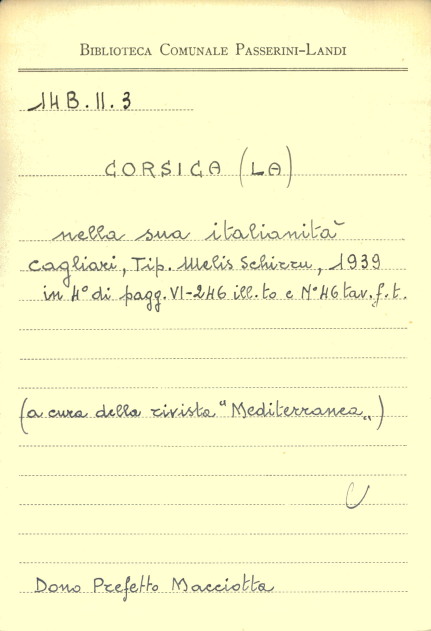 BIBLIOTECA COMUNALE PASSERINI-LANDI
14 B. II. 3
CORSICA (LA)
nella sua italianità
Cagliari, Tip. Melis Schirru, 1939
in 4° di pagg. VI-246 ill.to e N° 46 tav. f. t.
(a cura della rivista "Mediterranea„)
Dono Prefetto Macciotta